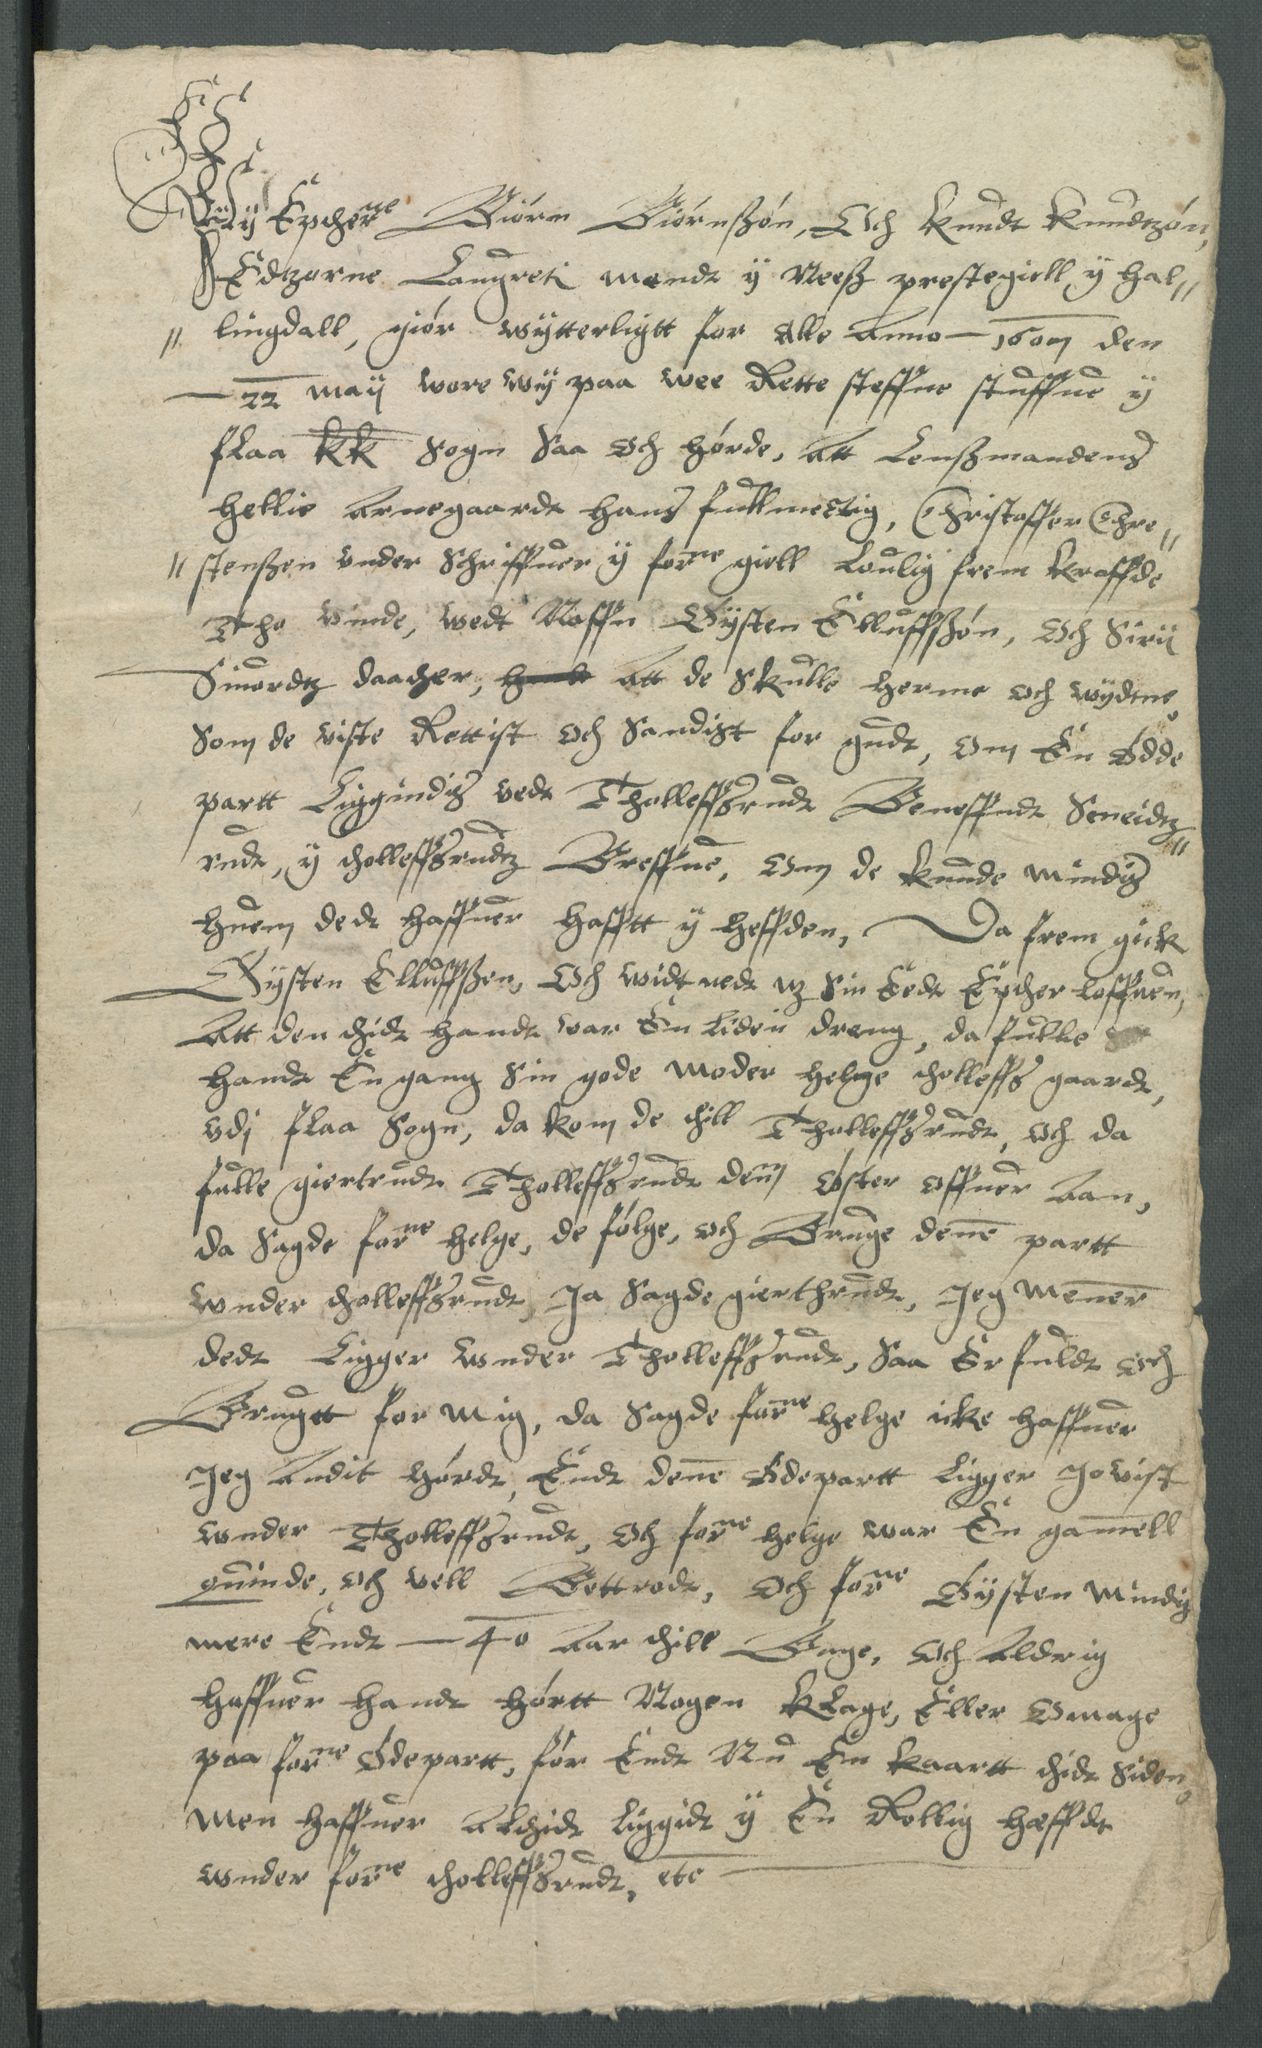 Wÿ Epcherne Biörn Biörnßön, Och Knudt Knudtzön,
Edtzorne Laugretj mendt ÿ Neeß prestegiell ÿ Hal〃
〃 lingdall, giör wÿtterligtt for Alle Anno — den
— 22 Maÿ wore wÿ paa wee Rette steffne stuffue ÿ
flaa KK Sogn Saa Och hörde, Att Lenßmandens
Hellie Arnegaardt hans fullmectig, Christoffer Chre〃
〃 stenßen under Schriffuer ÿ forne giell Loulig frem kraffde
Tho Vinde, wedt Naffn Öÿsten Elluffßön, Och Sirÿ
Siuordtz daacher, Att de Skulle herme och wÿdtne
Som de viste Rettist och Sandist for gudt, om En Ödde
partt Liggindis vedt Tholleffsrudt Beneffndt Sneidtz〃
rudt, ÿ tholleffsrudtz Breffue, Om de kunde Mindis
huem dedt haffuer hafftt ÿ heffden, Da frem gick
Öÿsten Elluffßen, Och widtnedt mz Sin Eedt Epcher Loffuen,
Att den thidt handt war En Liden dreng, da fulle
handt En gang Sin gode Moder helge tholleffs gaardt,
vdj flaa Sogn, da kom de thill Tholleffsrudt, och da
fulle giertrudt Tholleffsrudt dem öster offuer Aan,
da Sagde forne helge, de fölge, och Bruge denne partt
wnder tholleffsrudt, Ja Sagde gierthrudt, Jeg Mener
dedt Ligger wnder Tholleffsrudt, Saa Er fuldt och
Brugtt for Mig, da Sagde forne helge icke haffuer
Jeg Andit hördt, Endt denne Ödepartt Ligger Jo vist
wnder Tholleffsrudt, Och forne helge war En gamell
quinde, och vell Bettrodt, Och forne Öÿsten Mindis
mere Endt — 40 Aar thill Bage, Och Aldrig
haffuer handt hörtt Nogen Klage, Eller Omage
paa forne Ödepartt, för Endt Nu Em kaartt thidt Siden,
Men haffuer Althidt Liggidt ÿ En Rollig Hæffdt
wnder forne tholleffsrudt, etc —